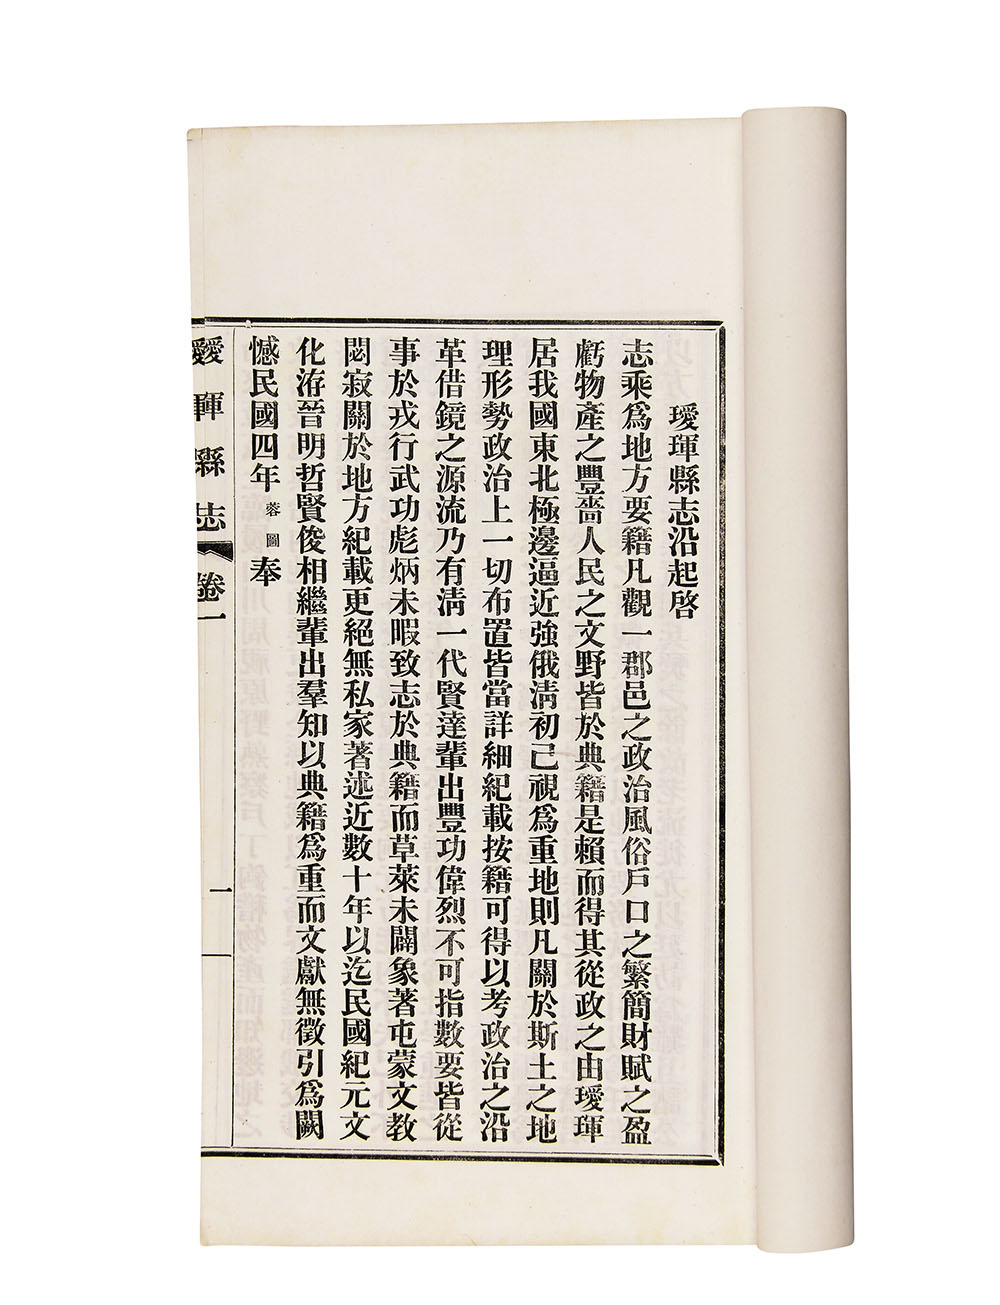 瑷琿縣志沿起啓
志乘爲地方要籍凡觀一郡邑之政治風俗戶口之繁簡財賦之盈
虧物產之豐嗇人民之文野皆於典籍是賴而得其從政之由瑷琿
居我國東北極邊逼近強俄淸初己視爲重地則凡關於斯土之地
理形勢政治上一切布置皆當詳細紀載按籍可得以考政治之沿
革借鏡之源流乃有淸一代賢達輩出豐功偉烈不可指數要皆從
事於戎行武功彪炳未暇致志於典籍而草萊未闢象著屯蒙文教
閟寂關於地方紀載更絕無私家著述近數十年以迄民國紀元文
化洊晉明哲賢俊相繼輩出羣知以典籍爲重而文獻無徵引爲闕
憾民國四年蓉圖奉
瑷琿縣志 卷一 一